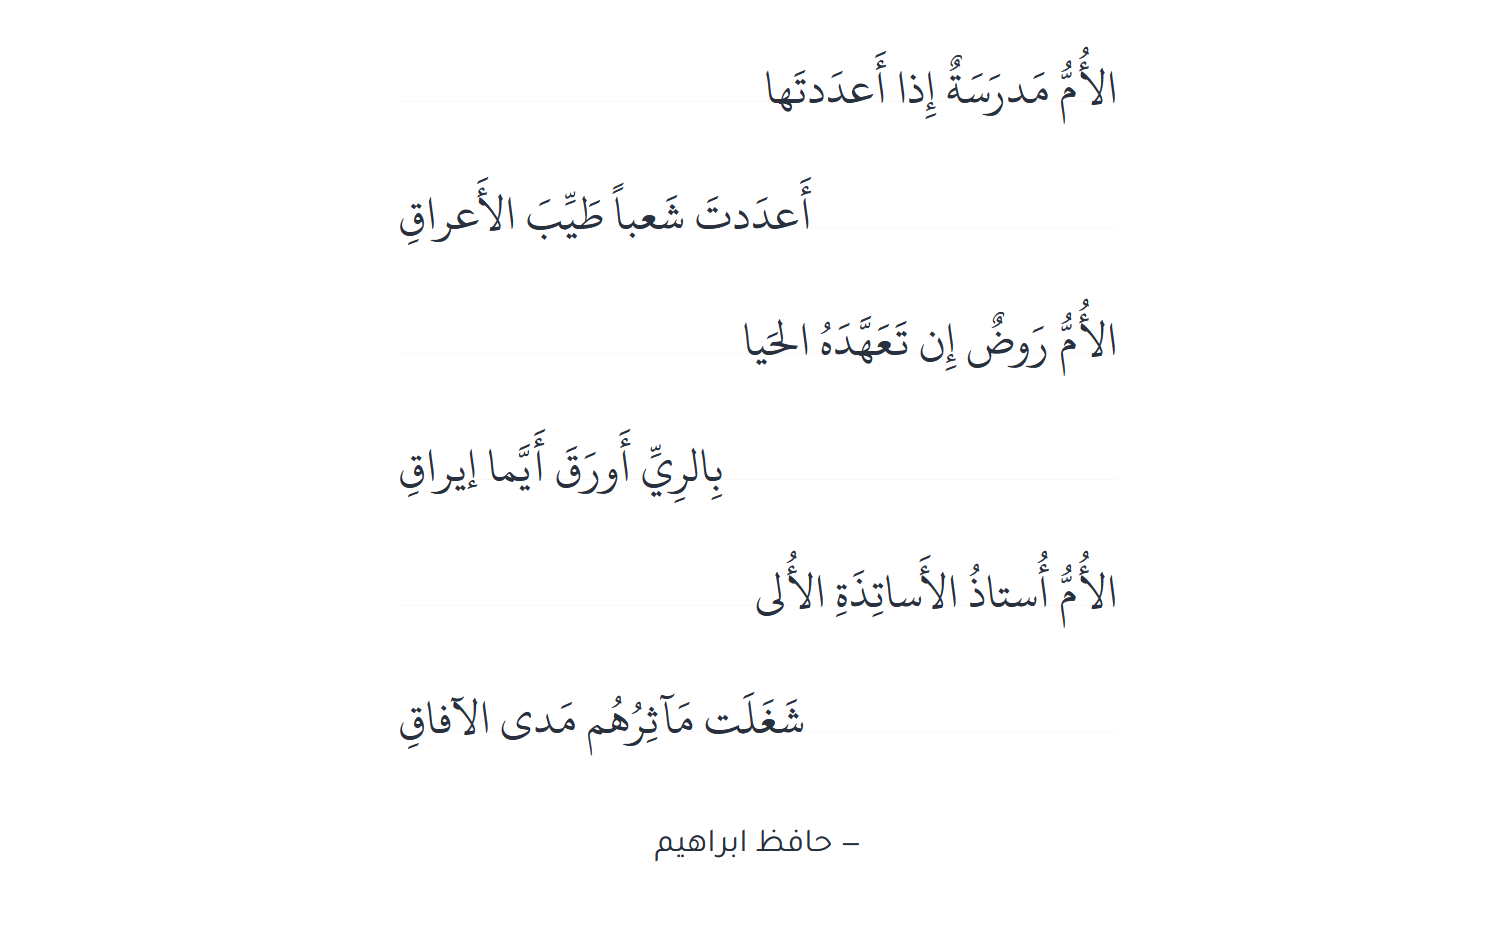 الأُمُّ مَدرَسَةٌ إِذا أَعدَدتَها
أَعدَدتَ شَعباً طَيِّبَ الأَعراقِ
الأُمُّ رَوضٌ إِن تَعَهَّدَهُ الحَيا
بِالرِيِّ أَورَقَ أَيَّما إيراقِ
الأُمُّ أُستاذُ الأَساتِذَةِ الأُلى
شَغَلَت مَآثِرُهُم مَدى الآفاقِ
– حافظ ابراهيم